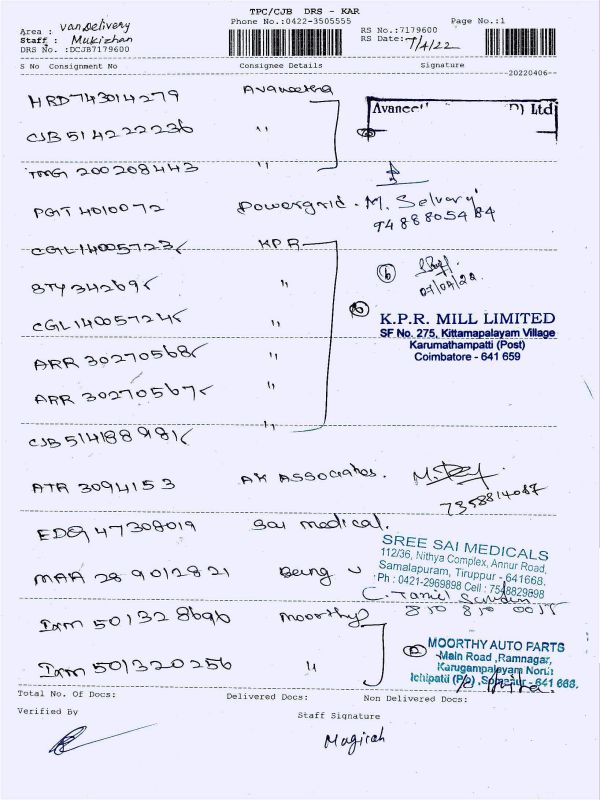 TPC/CJB DRS - KAR
Area : van Delivery
Phone No.:0422-3505555
Page No.:1
Staff : Mukizhan
RS No.:7179600
DRS No. :DCJB7179600
RS Date: 7/4/22
S No Consignment No Consignee Details Signature
20220406--
HRD743014279 Avaneetha
CJB 514222236 "
TMG 200208443 "
PGT 4010072 Powergrid - M. Selvaraj
9488805484
CGL14005723 KPR
BTY 342695 "
07/04/22
CGL14005724 "
K.P.R. MILL LIMITED
SF No. 275, Kittamapalayam Village
Karumathampatti (Post)
Coimbatore - 641 659
ARR 30270568 "
ARR 30270567 "
CJB514188981 "
ATR 3094153 AK Associates.
7358814087
EDQ 47308019 Sai medical.
SREE SAI MEDICALS
112/36, Nithya Complex, Annur Road,
Samalapuram, Tiruppur - 641668.
Ph : 0421-2969898 Cell : 7548829898
MAA 289012821 Being U
IXM 501328696 Moorthy
IXM 501320256 "
MOORTHY AUTO PARTS
Main Road ,Ramnagar,
Karugampalayam North
Ichipatti (Po), 641 668.
Total No. Of Docs: Delivered Docs: Non Delivered Docs:
Verified By Staff Signature